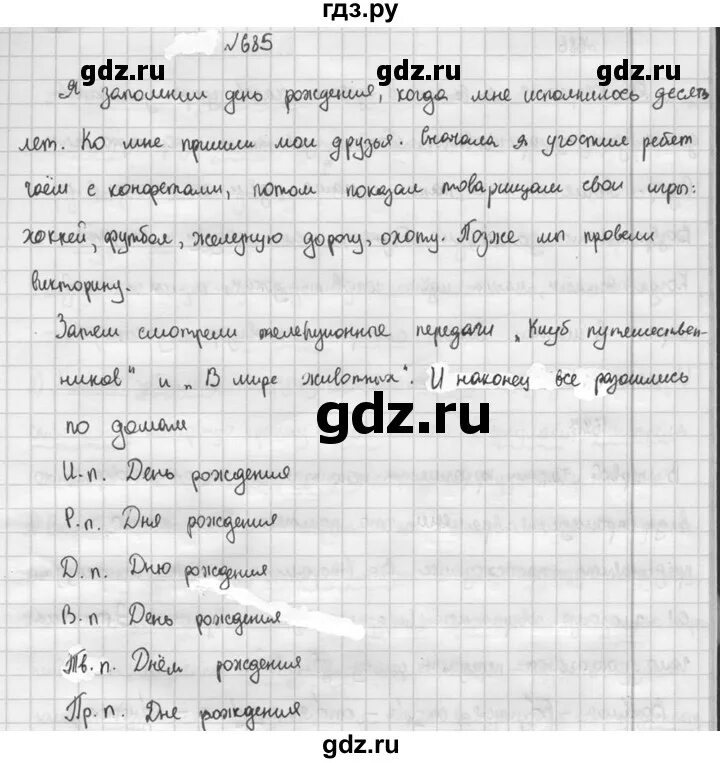 гдз.ру
№685
gdz.ru gdz.ru
Я запомнил день рождения, когда мне исполнилось десять
лет. Ко мне пришли мои друзья. Вначала я угостил ребят
чаем с конфетами, потом показал товарищам свои игры:
хоккей, футбол, железную дорогу, охоту. Позже мы провели
викторину.
Затем смотрели телевционные передачи „Клуб путешествен-
ников" и „В мире животных". И наконец все разошлись
gdz.ru
по домам
И.п. День рождения
Р.п. Дня рождения
gdz.ru gdz.ru
Д.п. Дню рождения
В.п День рождения
Тв.п. Днём рождения
Пр.п. Дне рождения
gdz.ru